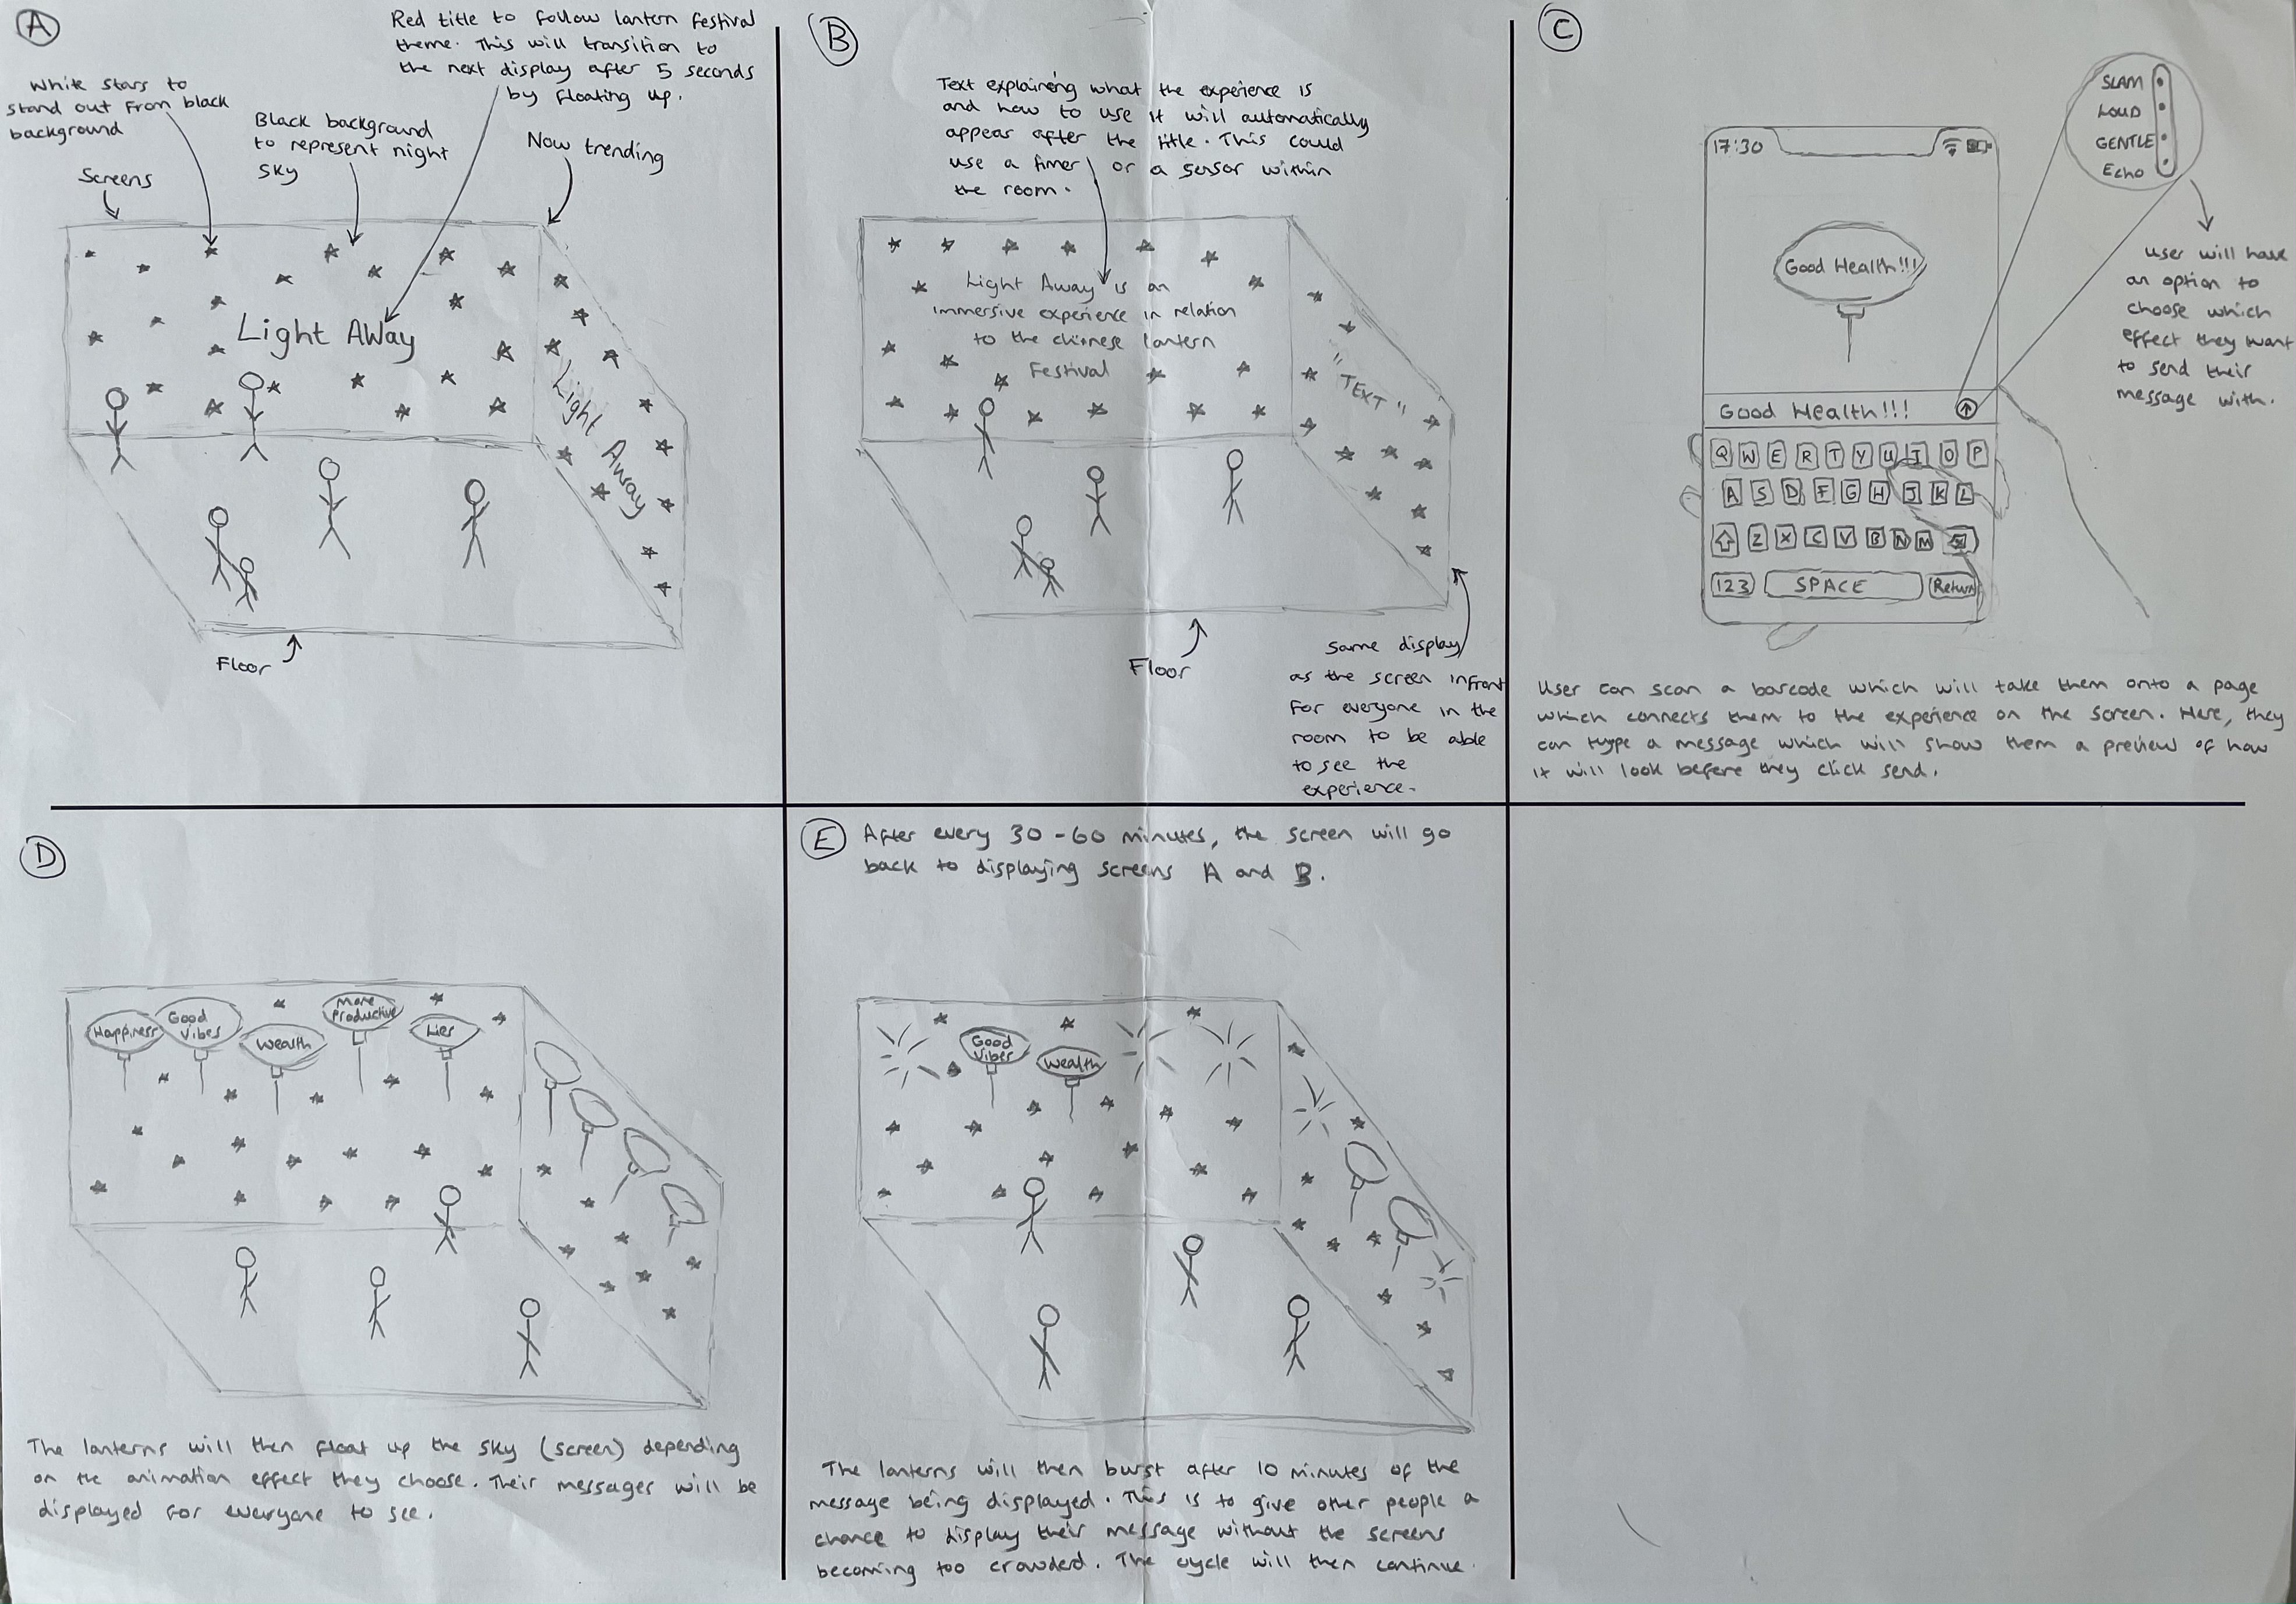 A
Red title to follow lantern festival
theme. This will transition to
the next display after 5 seconds
by floating up.
White stars to
stand out from black
background
Black background
to represent night
sky
Now trending
Screens
Light AWay
Light Away
Floor
B
Text explaining what the experience is
and how to use it will automatically
appear after the title. This could
use a timer or a sensor within
the room.
Light Away is an
immersive experience in relation
to the chinese lantern
Festival
"TEXT"
Floor
Same display
as the screen infront
for everyone in the
room to be able
to see the
experience.
C
SLAM
LOUD
GENTLE
Echo
17:30
Good Health!!!
User will have
an option to
choose which
effect they want
to send their
message with.
Good Health!!!
Q W E R T Y U I O P
A S D F G H J K L
Z X C V B N M
123 SPACE Return
User can scan a barcode which will take them onto a page
which connects them to the experience on the screen. Here, they
can type a message which will show them a preview of how
it will look before they click send.
D
Happiness
Good
Vibes
Wealth
More
Productive
Lies
The lanterns will then float up the sky (screen) depending
on the animation effect they choose. Their messages will be
displayed for everyone to see.
E
After every 30-60 minutes, the screen will go
back to displaying screens A and B.
Good
Vibes
Wealth
The lanterns will then burst after 10 minutes of the
message being displayed. This is to give other people a
chance to display their message without the screens
becoming too crowded. The cycle will then continue.